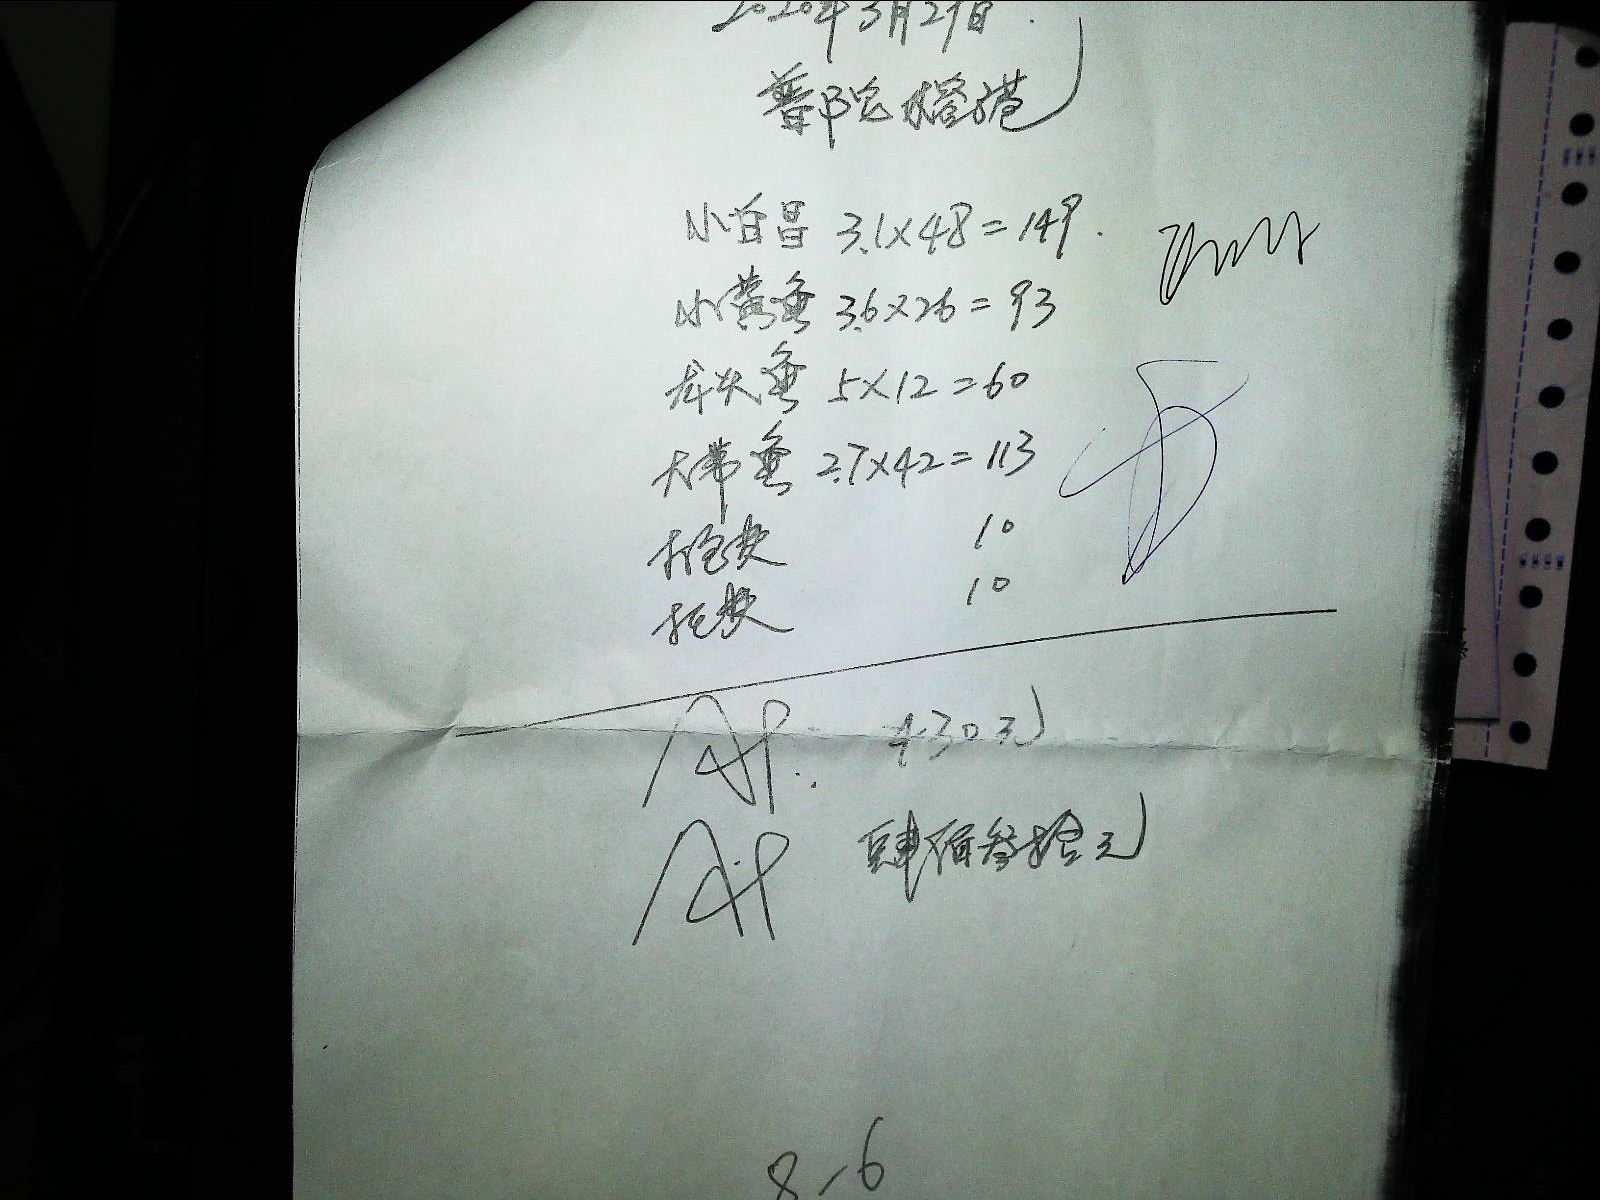 2020年3月29日
普陀 塔港
小白昌 3.1×48=149
小黄鱼 3.6×26=93
龙头鱼 5×12=60
大带鱼 2.7×42=113
10
10
430元
肆佰叁拾元
8-6